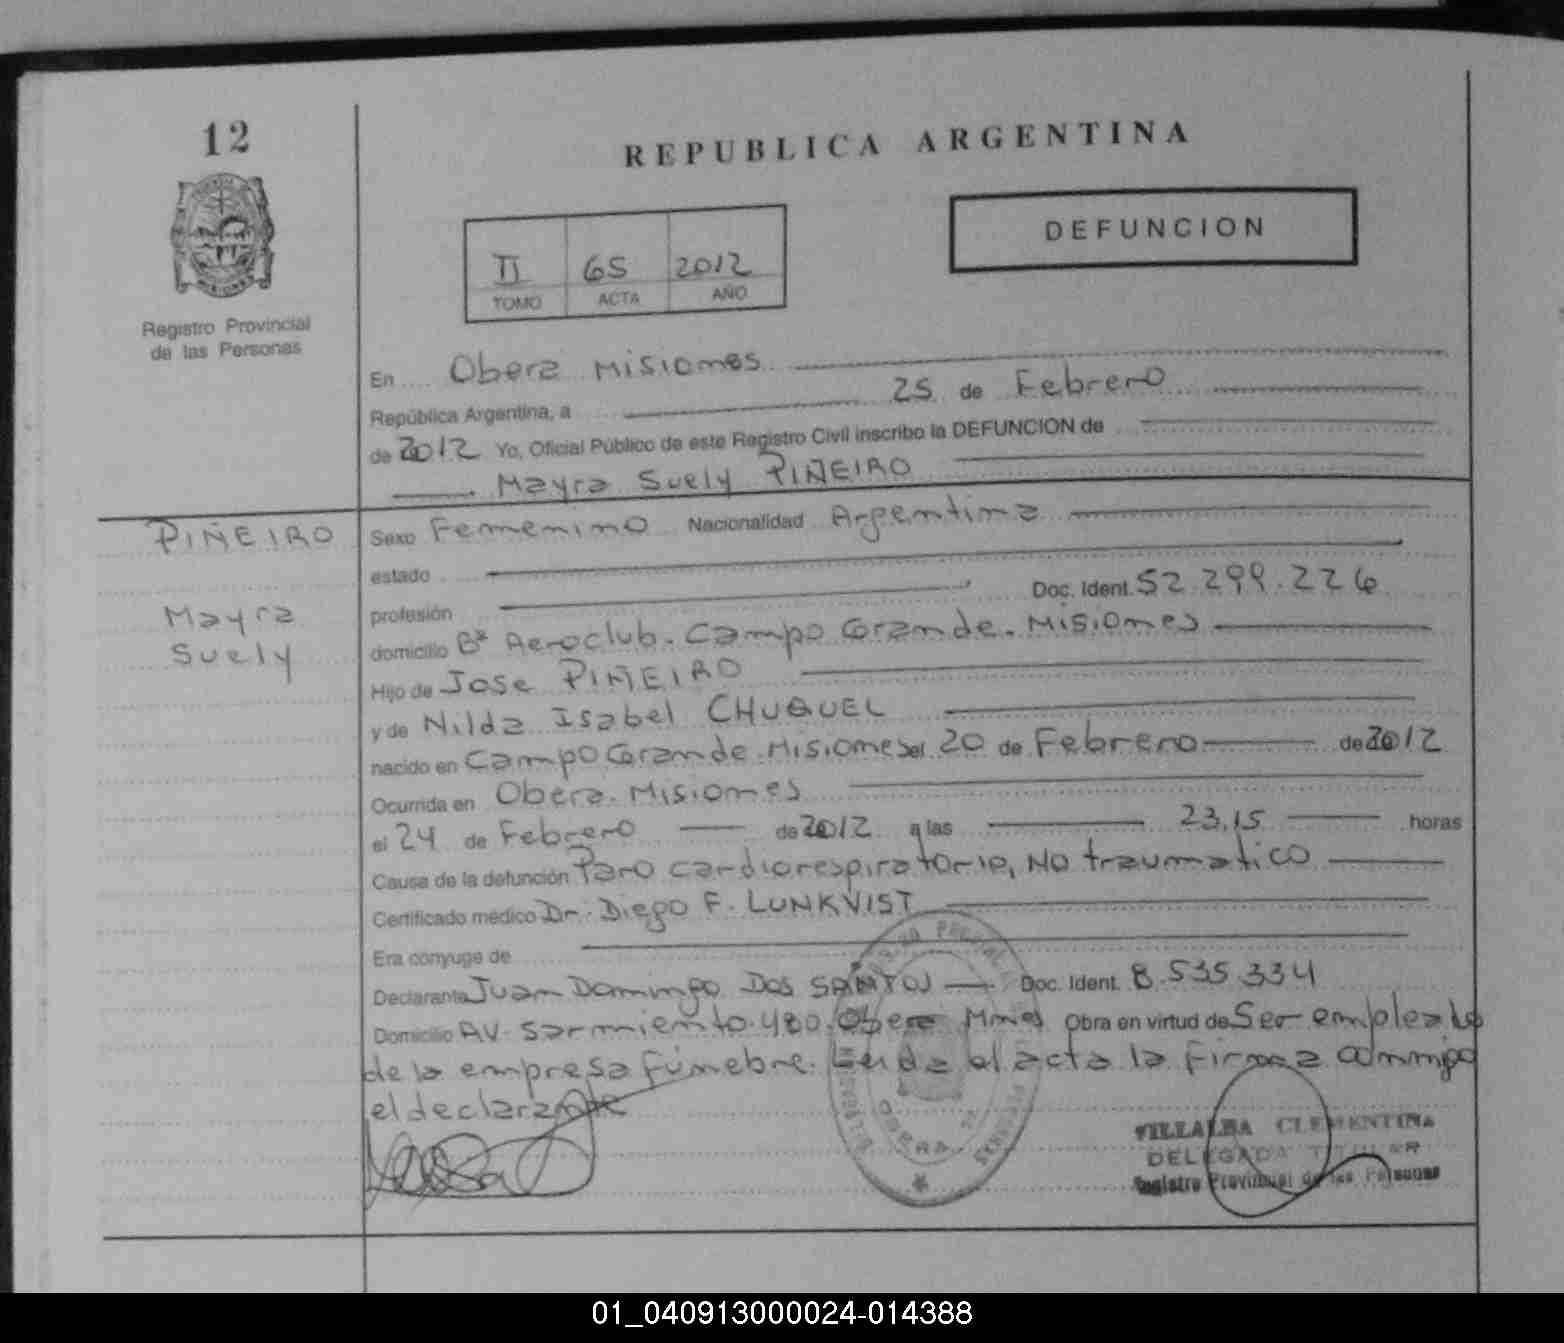 12
REPUBLICA ARGENTINA
DEFUNCION
II 65 2012
TOMO ACTA AÑO
Registro Provincial
de las Personas
En Obera Misiones
República Argentina, a 25 de Febrero
de 2012 Yo, Oficial Público de este Registro Civil inscribo la DEFUNCION de
Mayra Suely PIÑEIRO
PIÑEIRO
Mayra
Suely
Sexo Femenino Nacionalidad Argentina
estado
profesión Doc. Ident. 52.299.226
domicilio Bº Aeroclub. Campo Grande. Misiones
Hijo de Jose PIÑEIRO
y de Nilda Isabel CHUQUEL
nacido en Campo Grande. Misiones el 20 de Febrero de 2012
Ocurrida en Obera. Misiones
el 24 de Febrero de 2012 a las 23,15 horas
Causa de la defunción Paro cardiorespiratorio, No traumatico
Certificado médico Dr. Diego F. LUNKVIST
Era cónyuge de
Declarante Juan Domingo DOS SANTOS Doc. Ident. 8.535.334
Domicilio AV. Sarmiento. 480. Obera Mnes Obra en virtud de Ser empleado
de la empresa fúnebre. Leida el acta la firma conmigo
el declarante
OBERA
VILLALBA CLEMENTINA
DELEGADA TITULAR
Registro Provincial de las Personas
01_040913000024-014388